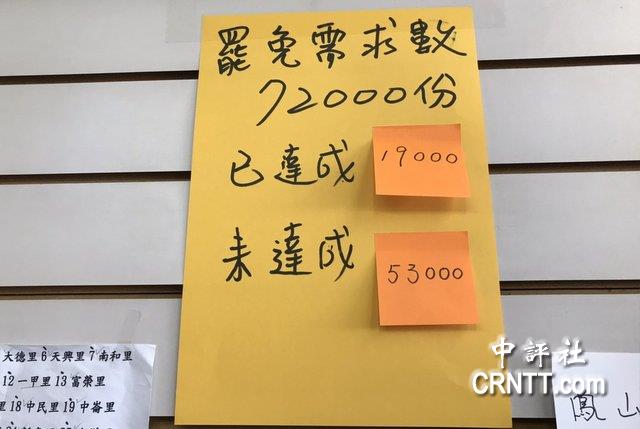 罷免需求數
72000份
已達成 19000
未達成 53000
大德里 6天興里 7南和里
12一甲里 13富榮里
里 18中民里 19中崙里
鳳山
中評社
CRNTT.com